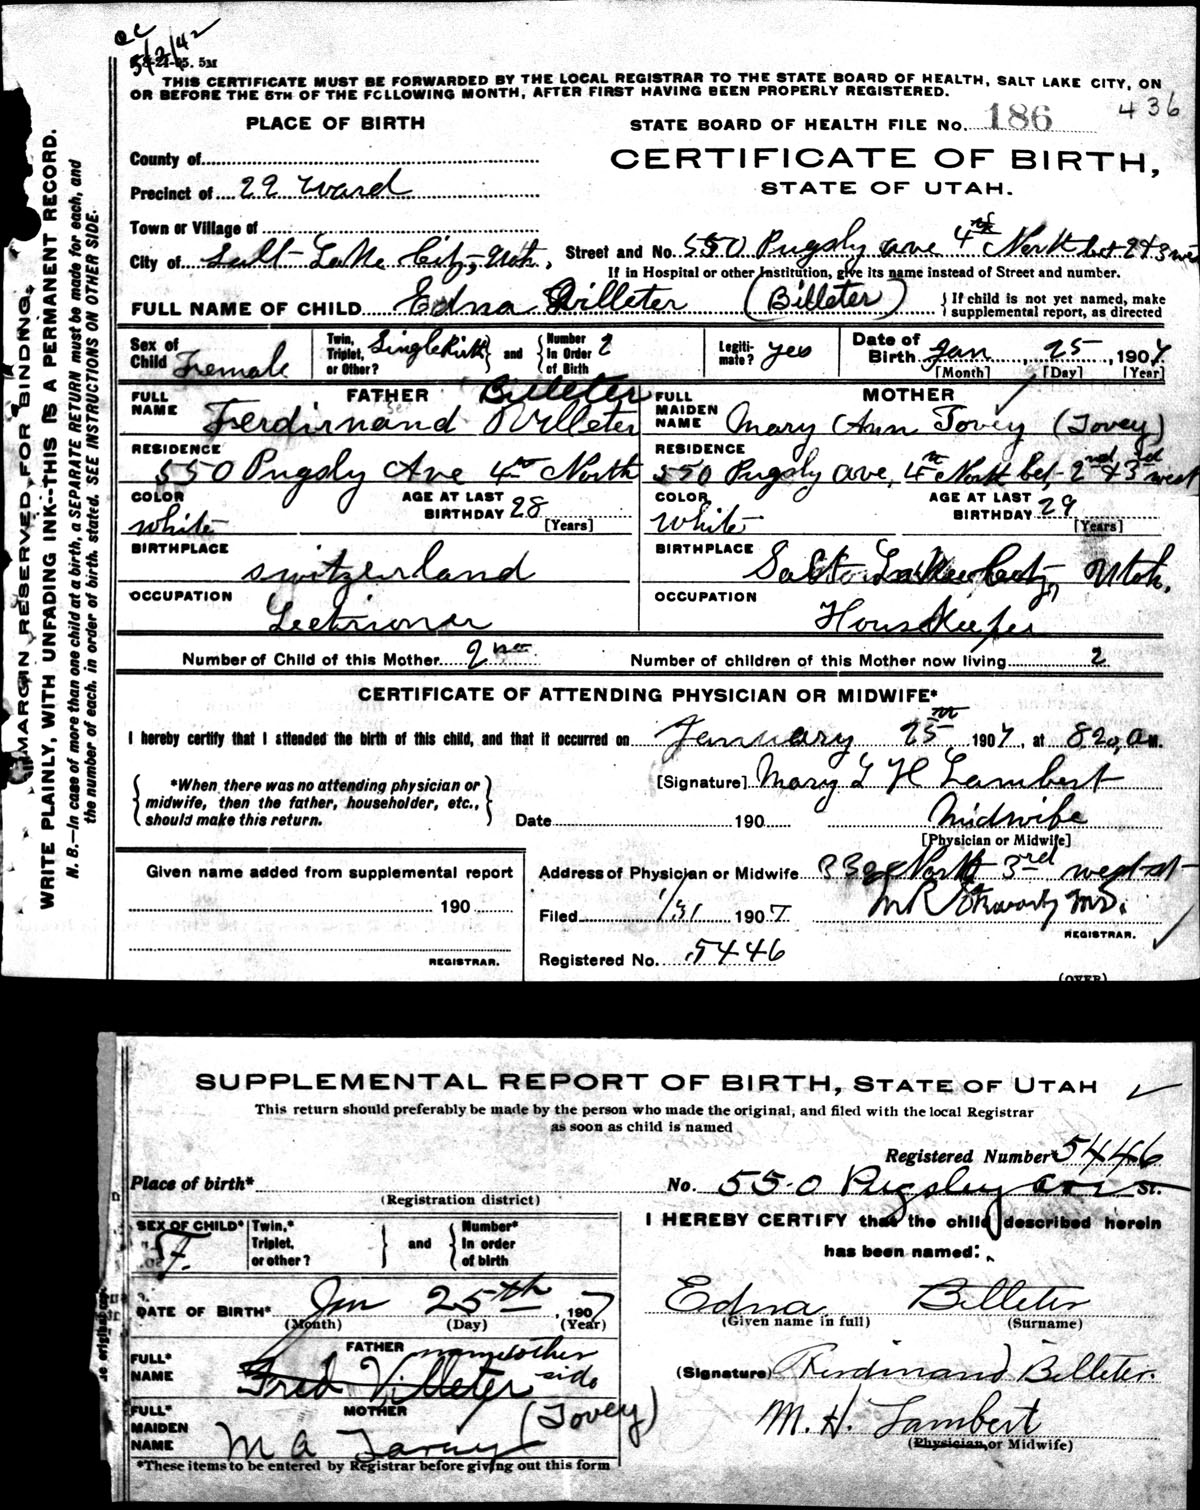 5/2/42
THIS CERTIFICATE MUST BE FORWARDED BY THE LOCAL REGISTRAR TO THE STATE BOARD OF HEALTH, SALT LAKE CITY, ON
OR BEFORE THE 5TH OF THE FOLLOWING MONTH, AFTER FIRST HAVING BEEN PROPERLY REGISTERED.
436
PLACE OF BIRTH
STATE BOARD OF HEALTH FILE No. 186
County of
CERTIFICATE OF BIRTH,
STATE OF UTAH.
Precinct of 22 Ward
Town or Village of
City of Salt Lake City, Utah, Street and No. 550 Pugsly ave 4th North bet 2 & 3 west
If in Hospital or other Institution, give its name instead of Street and number.
FULL NAME OF CHILD Edna Villeter (Billeter) { If child is not yet named, make supplemental report, as directed
Sex of Child Female Twin, Triplet, or Other? Single Birth and Number In Order of Birth 2 Legitimate? yes Date of Birth Jan, 25, 1907
[Month] [Day] [Year]
FATHER Billeter
MOTHER
FULL NAME Ferdinand Villeter
FULL MAIDEN NAME Mary Ann Tovey (Tovey)
RESIDENCE 550 Pugsly Ave 4th North
RESIDENCE 550 Pugsly ave, 4th North bet 2nd & 3rd west
COLOR white AGE AT LAST BIRTHDAY 28 [Years]
COLOR White AGE AT LAST BIRTHDAY 29 [Years]
BIRTHPLACE switzerland
BIRTHPLACE Salt Lake City, Utah.
OCCUPATION
OCCUPATION House Keeper
Number of Child of this Mother 2nd Number of children of this Mother now living 2
CERTIFICATE OF ATTENDING PHYSICIAN OR MIDWIFE*
I hereby certify that I attended the birth of this child, and that it occurred on January 25th 1907, at 8 20, a M.
*When there was no attending physician or midwife, then the father, householder, etc., should make this return.
[Signature] Mary L H Lambert
Date 190 Midwife
[Physician or Midwife]
Given name added from supplemental report
190
REGISTRAR.
Address of Physician or Midwife North 3rd west st
Filed 1/31 1907
REGISTRAR.
Registered No. 5446
(OVER)
MARGIN RESERVED FOR BINDING.
WRITE PLAINLY, WITH UNFADING INK--THIS IS A PERMANENT RECORD.
N. B.--In case of more than one child at a birth, a SEPARATE RETURN must be made for each, and
the number of each, in order of birth, stated. SEE INSTRUCTIONS ON OTHER SIDE.
SUPPLEMENTAL REPORT OF BIRTH, STATE OF UTAH
This return should preferably be made by the person who made the original, and filed with the local Registrar
as soon as child is named
Registered Number* 5446
Place of birth*
(Registration district)
No. 550 Pugsley Ave St.
SEX OF CHILD* F. Twin,* Triplet, or other? and Number* In order of birth
I HEREBY CERTIFY that the child described herein
has been named:
DATE OF BIRTH* Jan 25th, 1907
(Month) (Day) (Year)
Edna Billeter
(Given name in full) (Surname)
FATHER name other side
FULL* NAME Fred Villeter
(Signature) Ferdinand Billeter.
MOTHER (Tovey)
FULL* MAIDEN NAME M A
M. H. Lambert
(Physician, or Midwife)
*These items to be entered by Registrar before giving out this form